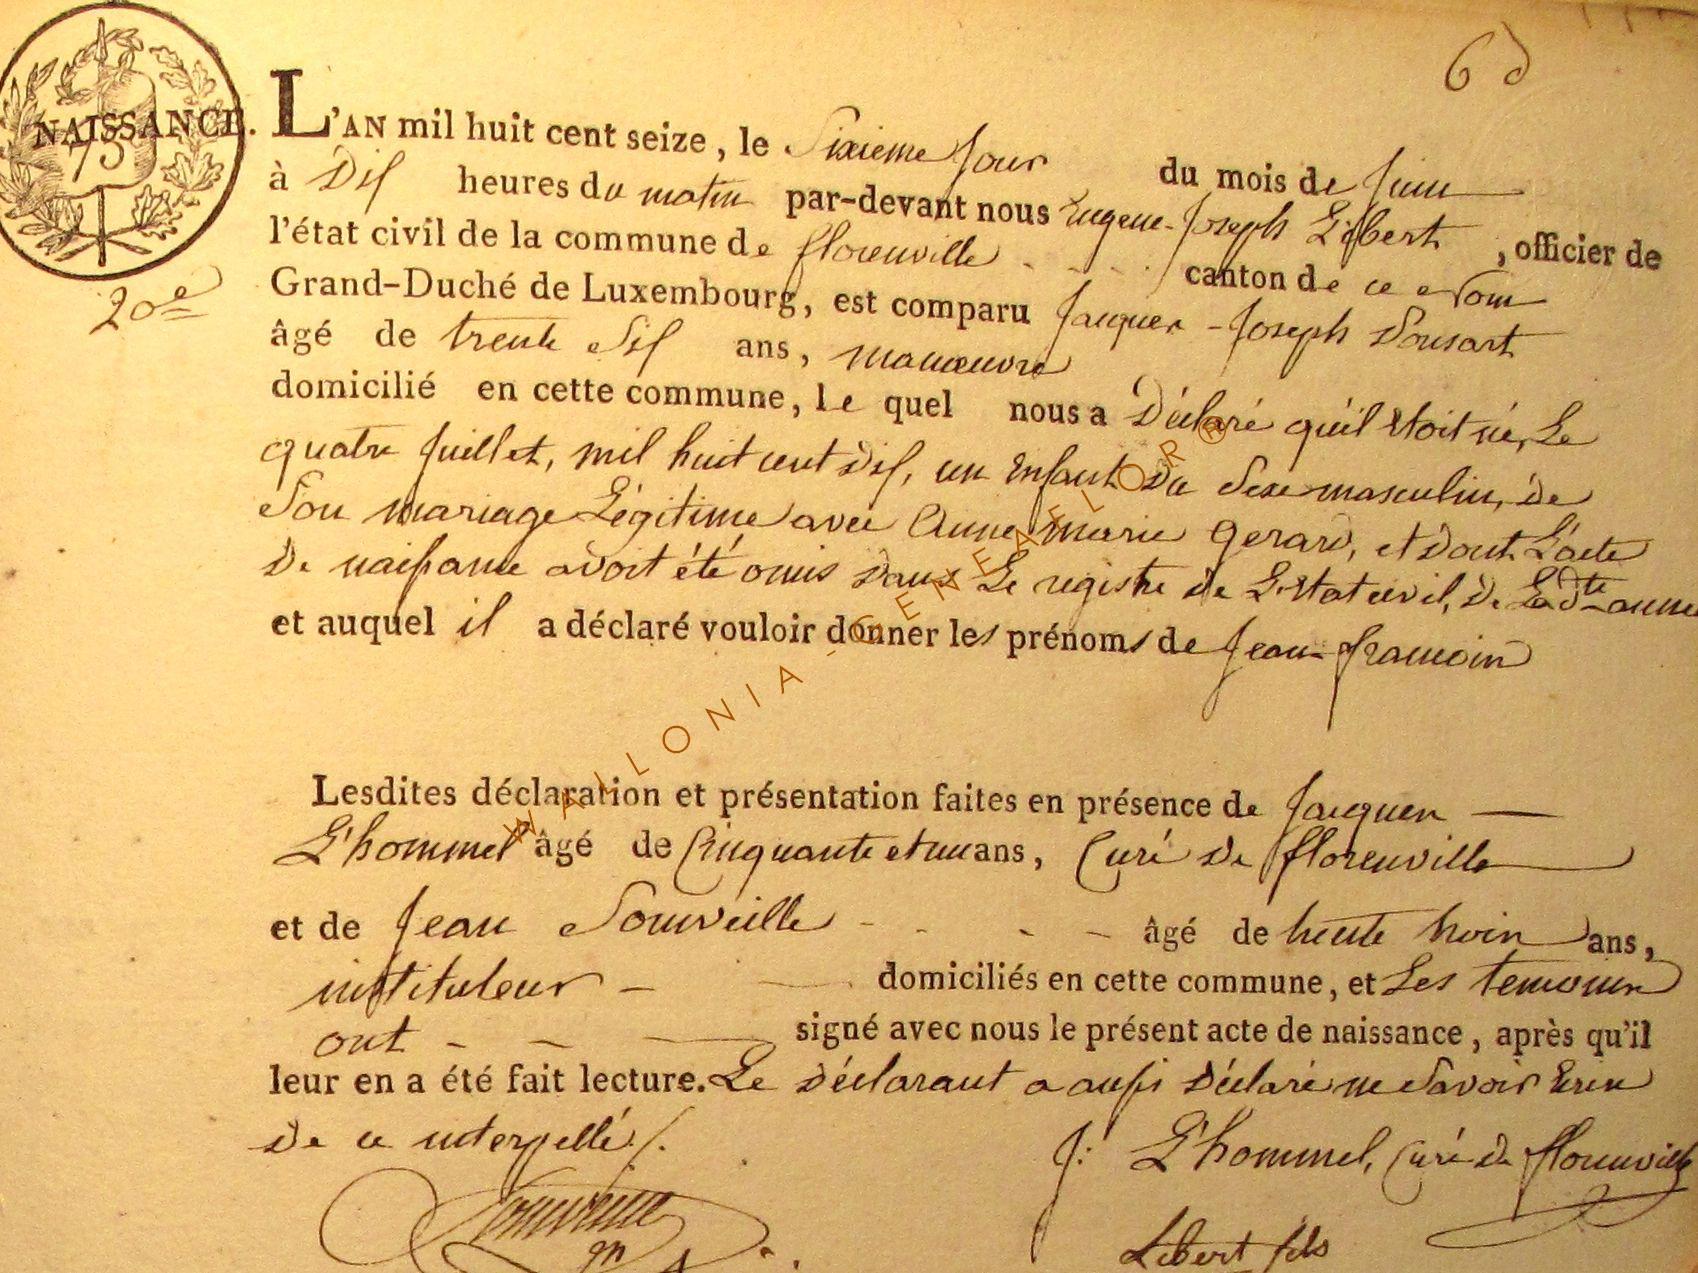 6
NAISSANCE.
75
20e
L'AN mil huit cent seize, le Sixieme Jour du mois de Juin
à Dix heures du matin par-devant nous Eugene-Joseph Libert, officier de
l'état civil de la commune de florenville canton de ce nom
Grand-Duché de Luxembourg, est comparu Jacques-Joseph Dousart
âgé de trente Six ans, manœuvre
domicilié en cette commune, le quel nous a Déclaré qu'il Etoit né, Le
quatre Juillet, mil huit cent dix, un Enfant Du Sexe masculin, de
Son mariage Légitime avec Anne marie gerard, et dont L'acte
De naissance avoit été omis dans Le registre de L'Etat civil, de Ladte année
et auquel il a déclaré vouloir donner les prénoms de Jean-françois
Lesdites déclaration et présentation faites en présence de Jacques
L'hommel âgé de Cinquante et un ans, Curé de florenville
et de Jean Souveille âgé de trente trois ans,
instituteur domiciliés en cette commune, et Les temoins
ont signé avec nous le présent acte de naissance, après qu'il
leur en a été fait lecture. Le déclarant a aussi déclaré ne Savoir Ecrire
De ce interpellé /.
J: L'hommel, Curé de florenville
Souveille
Libert fils
WALLONIA - GENEALOR ®